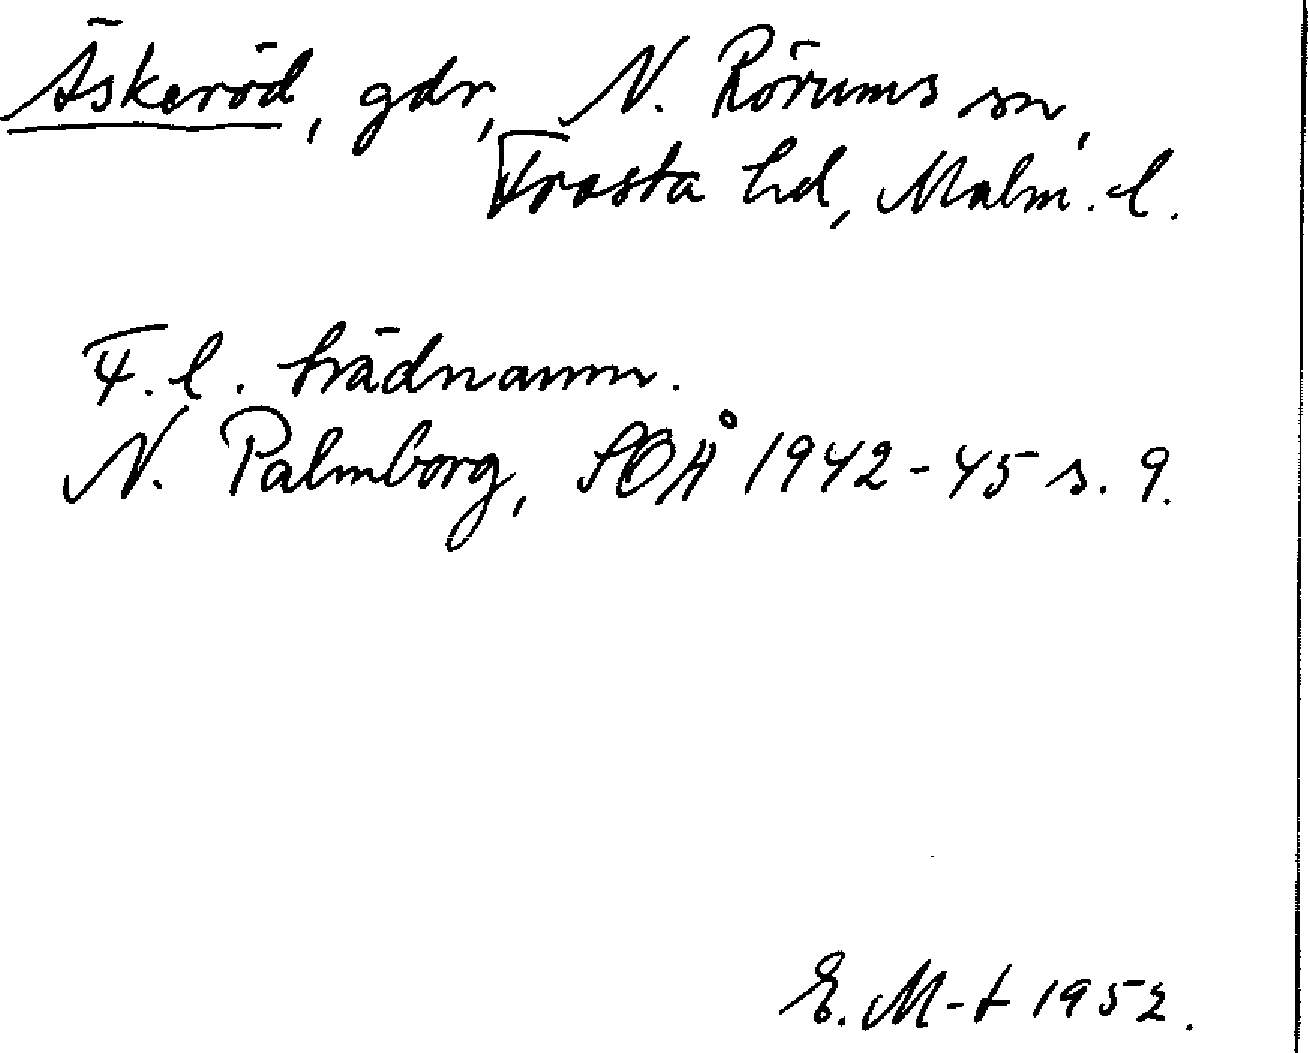 Äskeröd, gdr, N. Rörums sn,
Frosta hd, Malm. l.
F. l. trädnamn.
N. Palmborg, SOÅ 1942-45 s. 9.
E. M-t 1952.